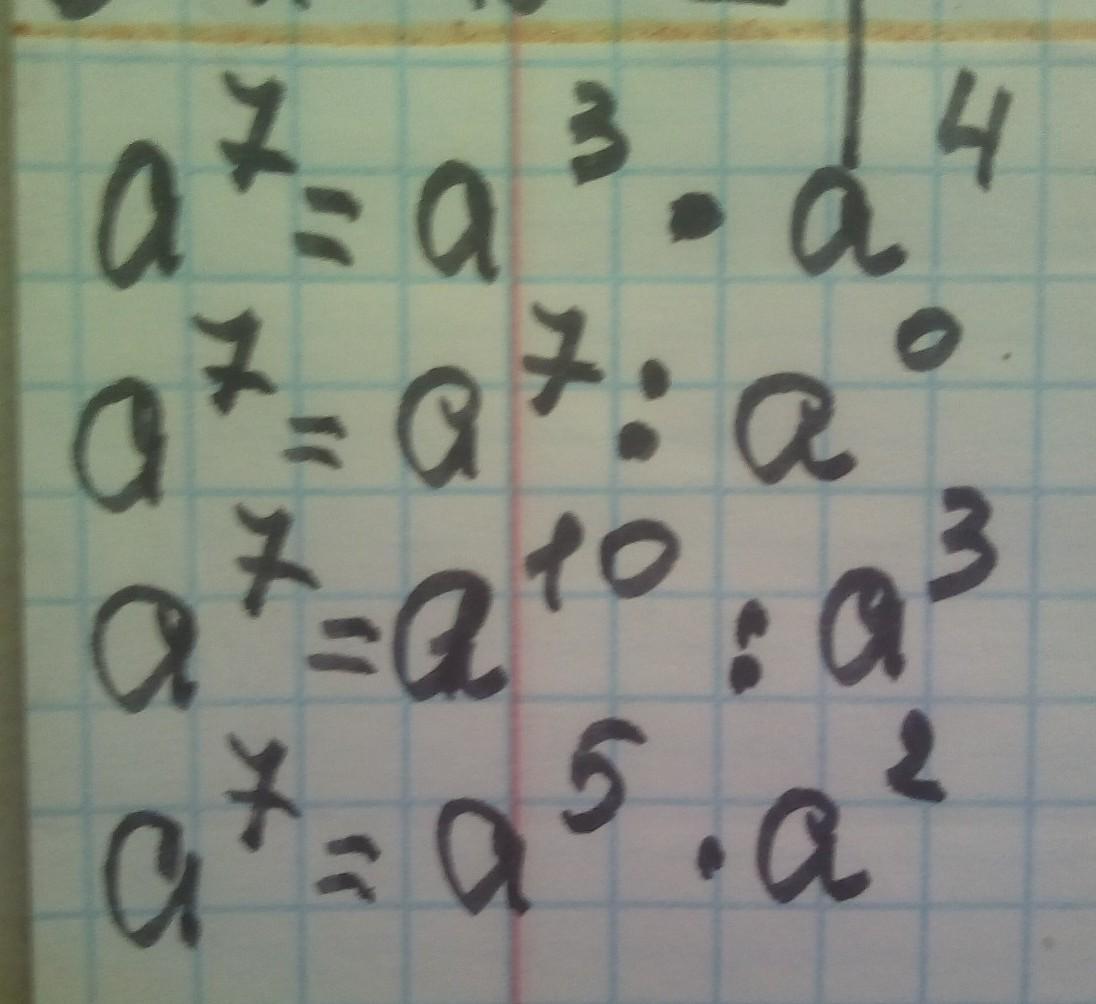 a⁷ = a³ · a⁴
a⁷ = a⁷ : a⁰
a⁷ = a¹⁰ : a³
a⁷ = a⁵ · a²